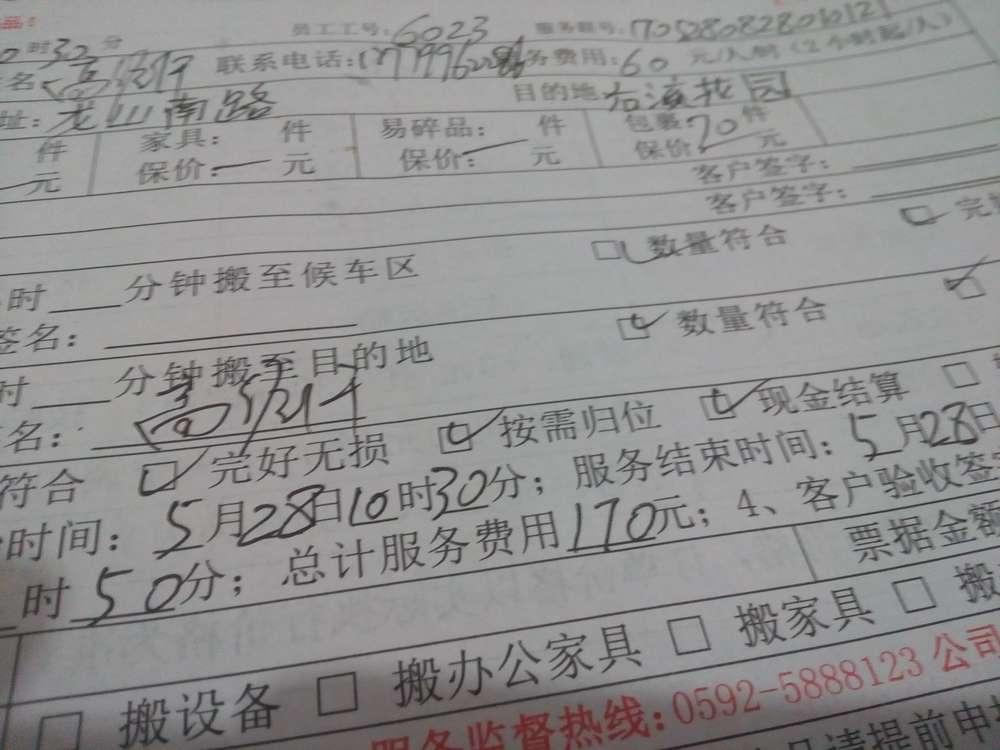 品:
员工工号: 6023 服务群号: 17052808280
时32分
名 联系电话: 务费用: 60 元/人/时(2小时起/人)
址: 龙山南路 目的地:
件 家具: 件 易碎品: 件 包裹: 70件
元 保价: 一 元 保价: 一 元 保价 元
客户签字:
客户签字:
时 分钟搬至候车区 数量符合 完
签名:
时 分钟搬至目的地 数量符合
名:
符合 完好无损 按需归位 现金结算
时间: 5月28日10时30分; 服务结束时间: 5月28日
时50分; 总计服务费用170元; 4、客户验收签
票据金额
搬设备 搬办公家具 搬家具 搬
服务监督热线: 0592-5888123 公司
请提前申